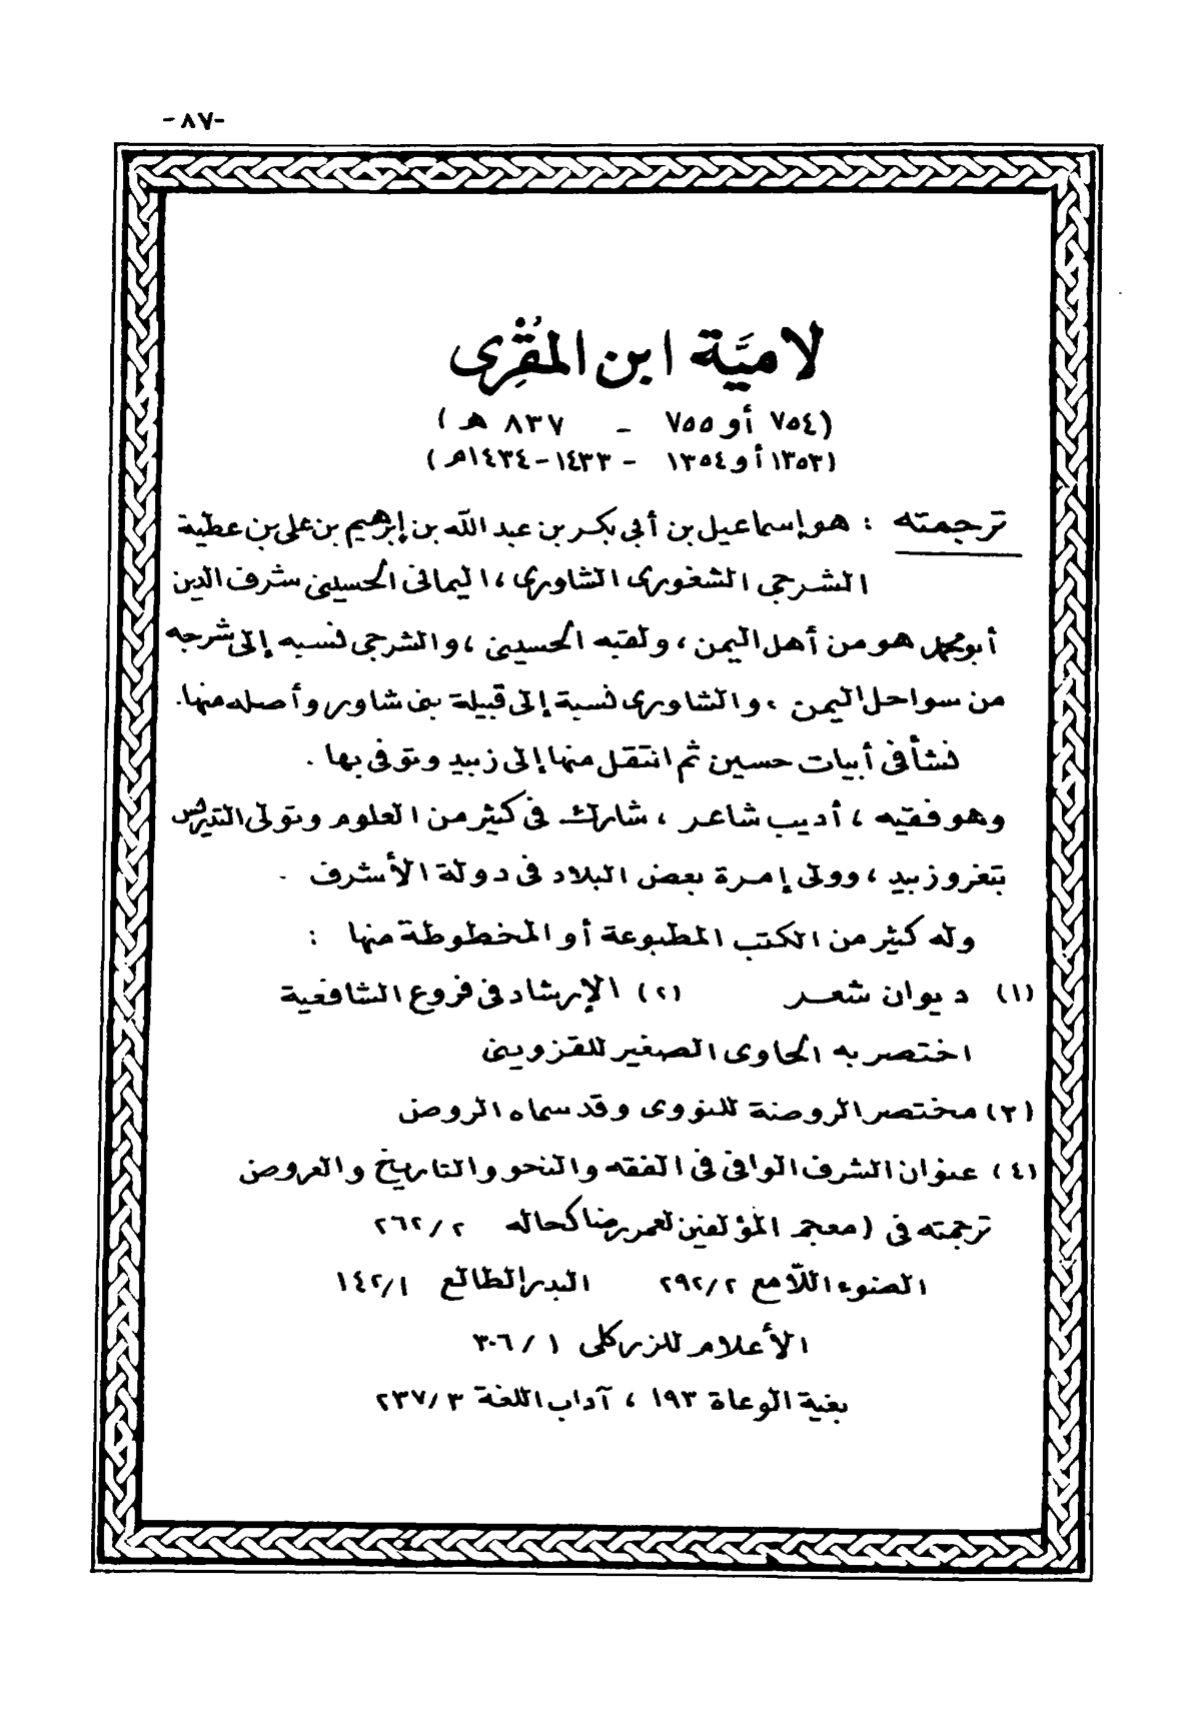 -٨٧-
لاميَّة ابن المُقْرِى
(٧٥٤ أو ٧٥٥ - ٨٣٧ هـ)
(١٣٥٣ أو ١٣٥٤ - ١٤٣٣-١٤٣٤م)
ترجمته : هو إسماعيل بن أبى بكر بن عبد الله بن إبرهيم بن على بن عطية
الشرجى الشغورى الشاورى ، اليمانى الحسينى شرف الدين
أبو محمد هو من أهل اليمن ، ولقبه الحسينى ، والشرجى نسبه إلى شرجه
من سواحل اليمن ، والشاورى نسبة إلى قبيلة بنى شاور وأصله منها.
نشأ فى أبيات حسين ثم انتقل منها إلى زبيد وتوفى بها .
وهو فقيه ، أديب شاعر ، شارك فى كثير من العلوم وتولى التدريس
بتغر وزبيد ، وولى إمرة بعض البلاد فى دولة الأشرف .
وله كثير من الكتب المطبوعة أو المخطوطة منها :
(١) ديوان شعر (٢) الإرشاد فى فروع الشافعية
اختصر به الحاوى الصغير للقزوينى
(٣) مختصر الروضة للنووى وقد سماه الروض
(٤) عنوان الشرف الوافى فى الفقه والنحو والتاريخ والعروض
ترجمته فى (معجم المؤلفين لعمر رضا كحاله ٢/٢٦٢
الضوء اللّامع ٢/٢٩٢ البدر الطالع ١/١٤٢
الأعلام للزركلى ١/٣٠٦
بغية الوعاة ١٩٣ ، آداب اللغة ٣/٢٣٧